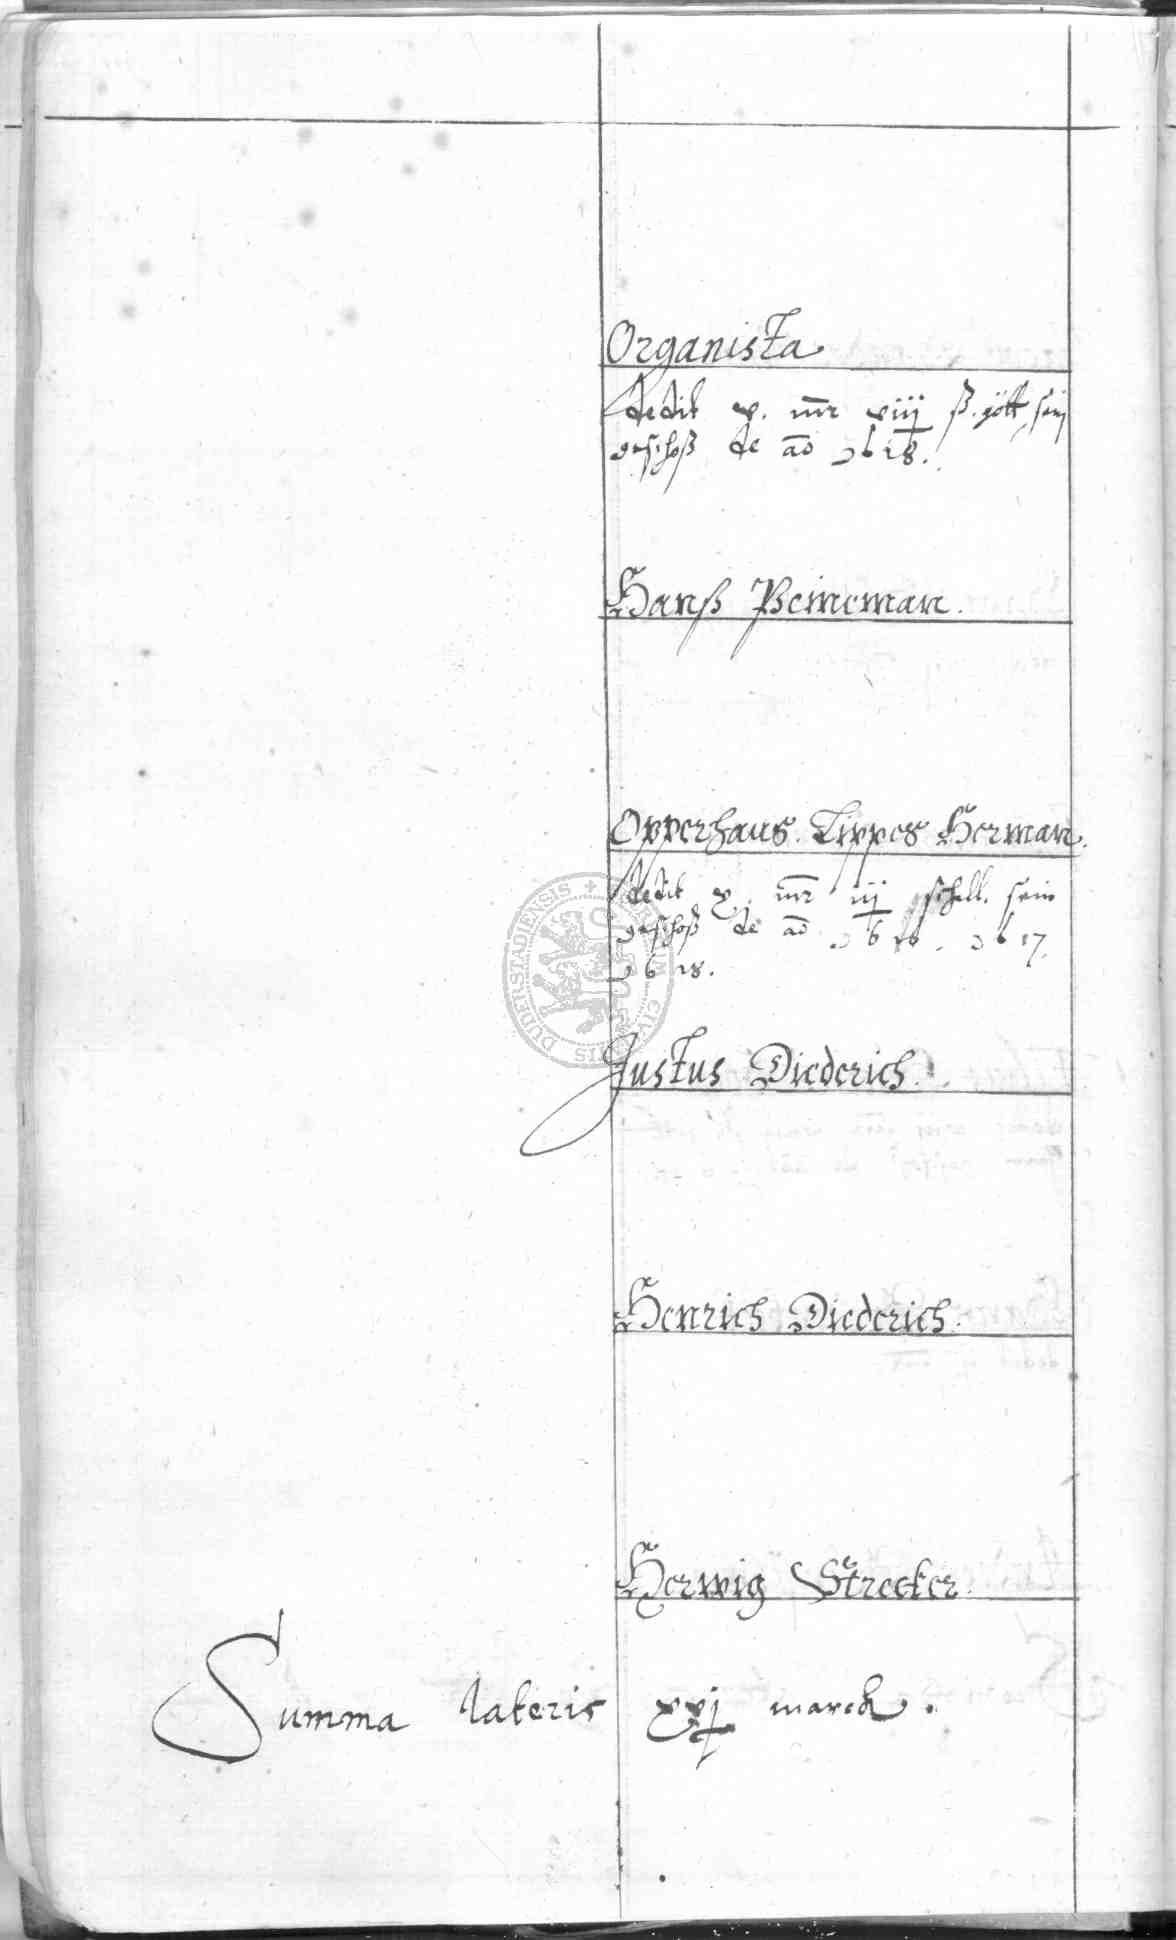 Organista
dedit x. mr xiij ß. gött sein
geschoß de ao 1618.
Hanß Peineman.
Opperhaus. Lippes Herman.
dedit x. mr iij schill. sein
geschoß de ao 1616. 1617.
1618.
SIGILLUM CIVITATIS DUDERSTADIENSIS
Justus Diederich.
Henrich Diederich.
Herwig Strecker.
Summa lateris xxj marck.